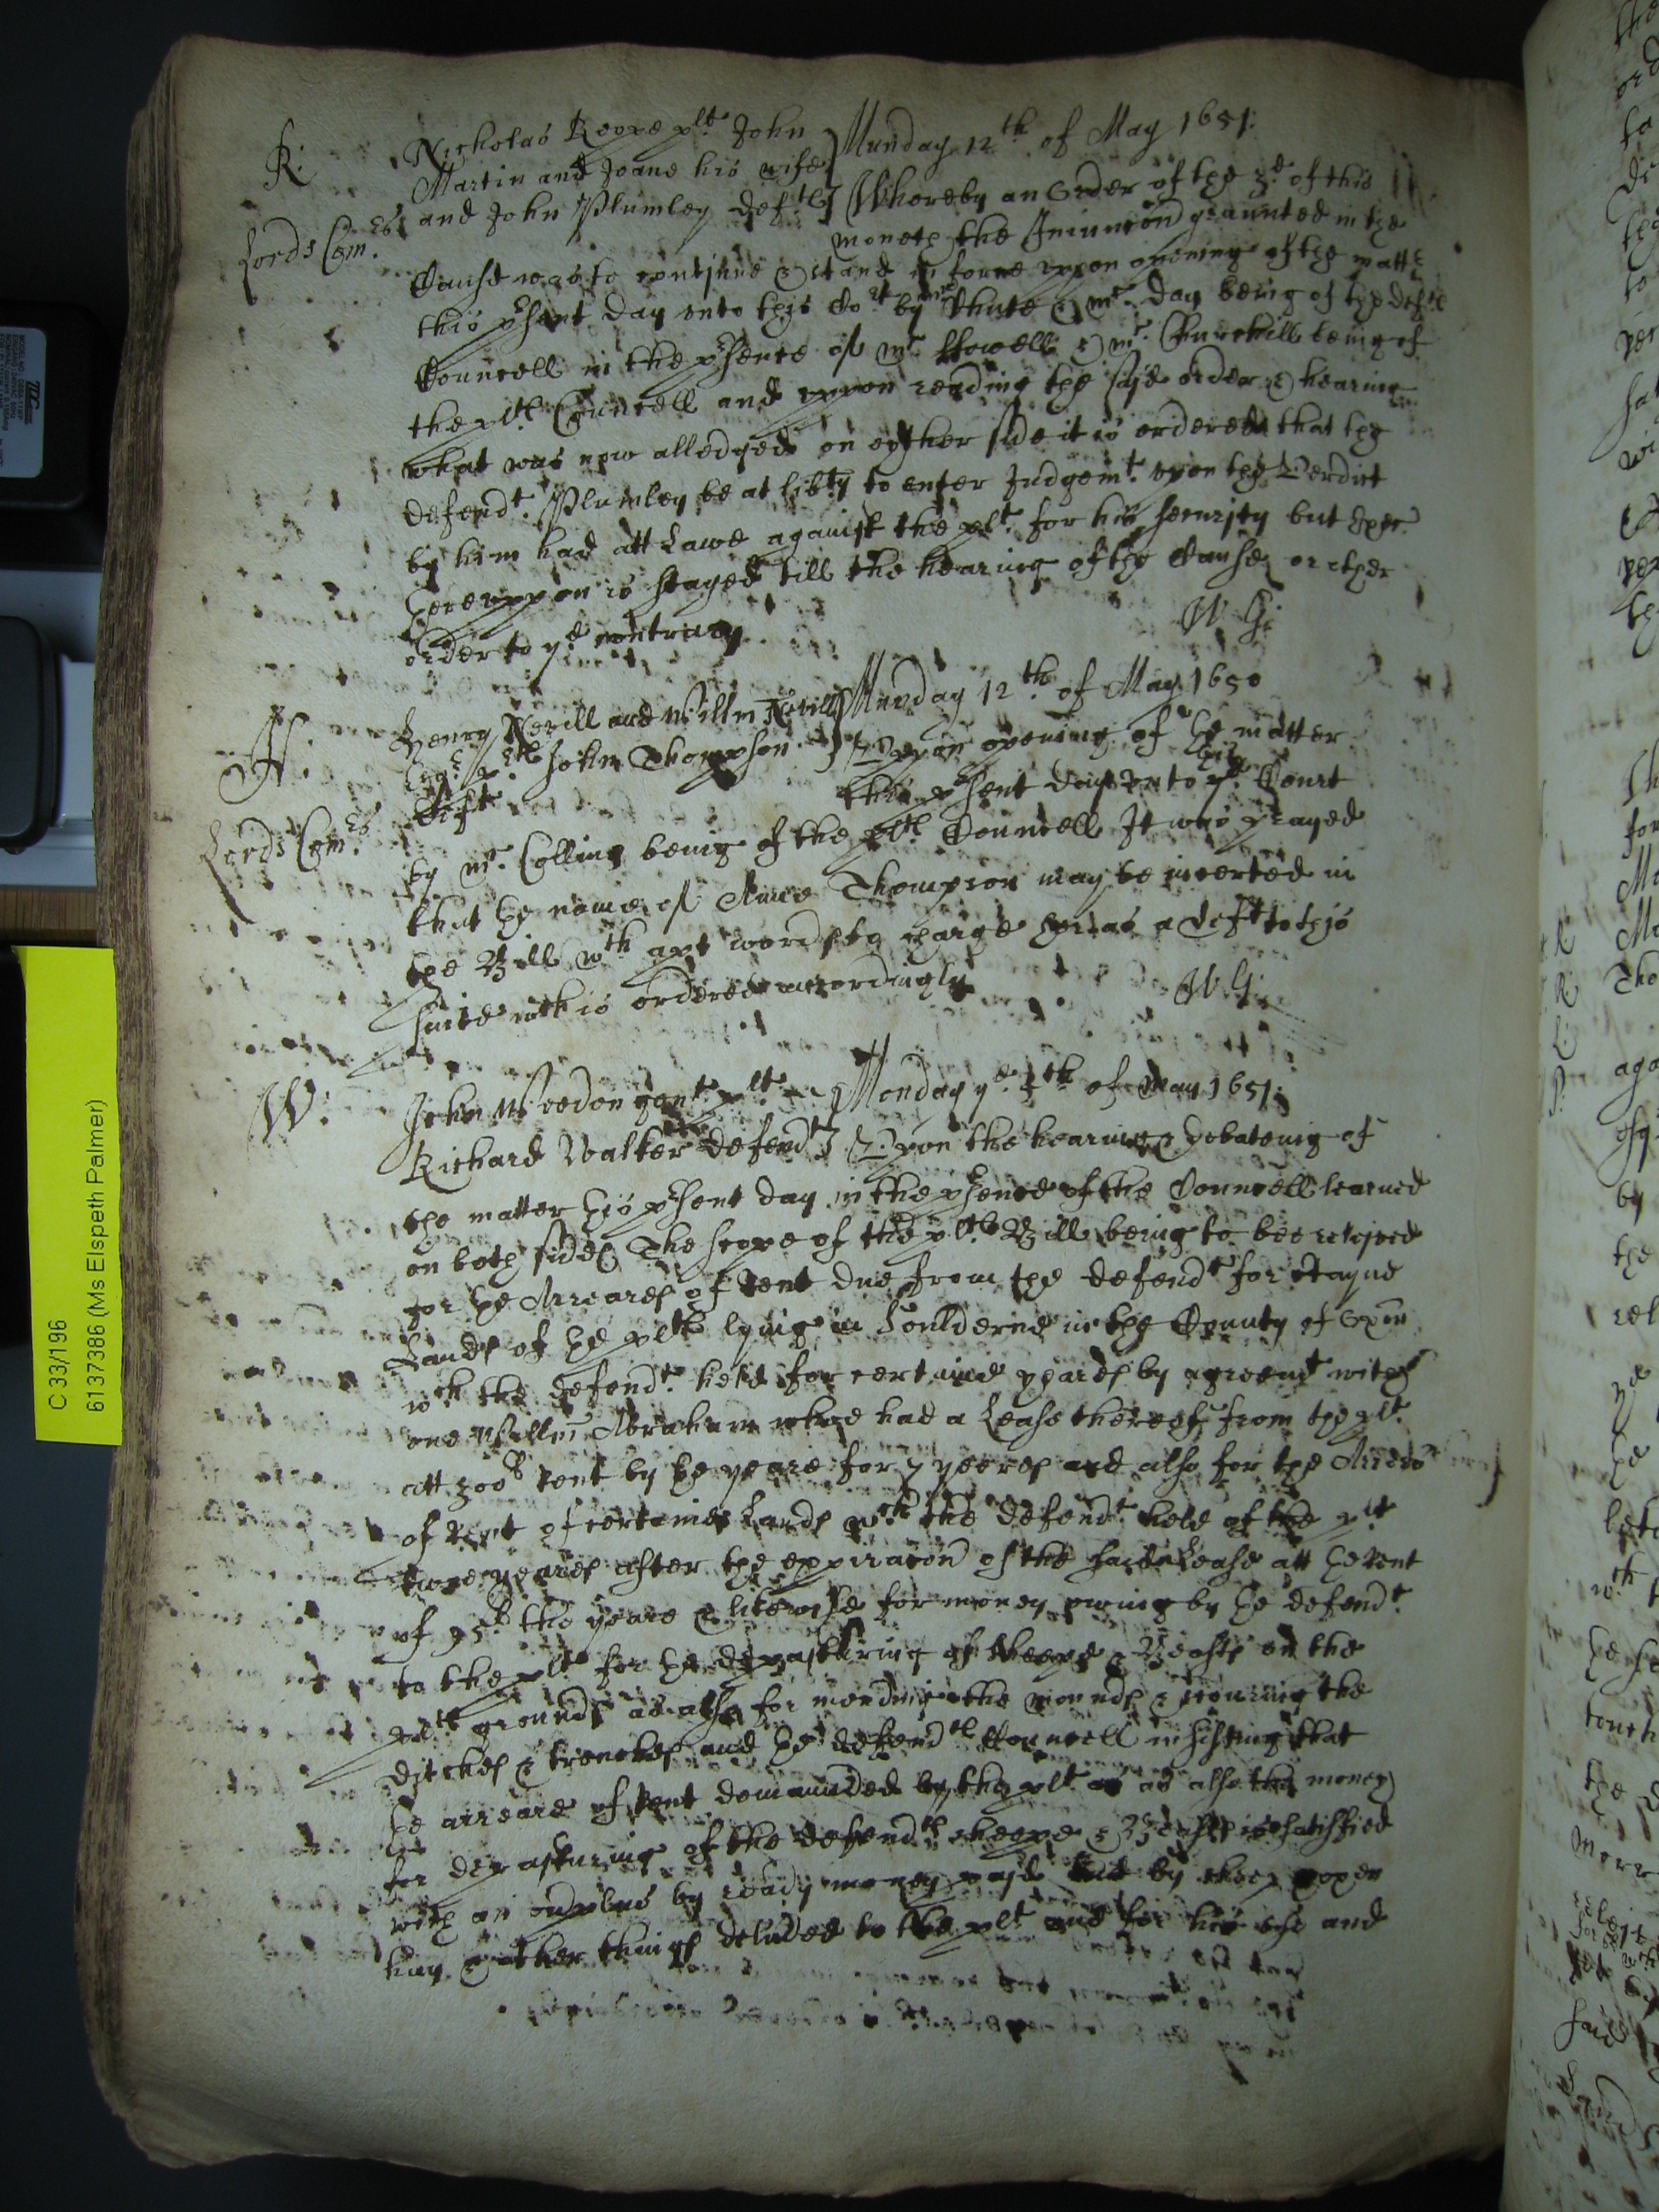 R:
Nicholas Roope plt John
Martin and Joane his wife
and John Plumley defts
Munday 12th of May 1651:
Lords Comrs
Whereby an Order of the 3d of this
moneth the Iniuncon graunted in the
Cause was to continue & stand in force uppon opening of the mattr
this psent day unto this Cort by mr Chute & mr Day being of the defts
Councell in the psence of mr Howell & mr Churchill being of
the plts Councell and uppon reading the sd order & hearing
what was now alledged on eyther side it is ordered that the
defendt Plumley be at libty to enter Judgemt upon the Verdict
by him had att Lawe against the plt for his security but
hereuppon is stayed till the hearing of the Cause or other
order to ye contrary
W G:
N:
Henry Nevill and Willm Nevill
Esqrs plts John Thompson
deft
Munday 12th of May 1650
Lords Comrs
Uppon opening of the matter
this psent day unto this Court
by mr Collins being of the plts Councell It was prayed
that the name of Thompson may be incerted in
the Bill wth apt words to charge her as a deft to this
suite wch is ordered accordingly
W G:
W:
John Weedon gent plt
Richard Walker defendt
Monday ye th of May 1651:
Upon the hearing & debateing of
the matter this psent day in the psence of the Councell learned
on both sides The scope of the plts Bill being to bee releived
for the Arreares of rent due from the defendt for ctayne
Lands of the plts lying in Soulderne in the County of Oxon
wch the defendt held for certaine yeares by agreemt with
one Willm Abraham whoe had a Lease thereof from the plt
att 300l rent by the yeare for 7 yeeres and also for the Arreares
of Rent of certaine Lands wch the defendt held of the plt
twoe yeares after the expiracon of the said Lease att the Rent
of 95l the yeare & likewise for money owing by the defendt
to the plt for the depasturing of sheepe & Beasts on the
plts grounds as also for mending the mounds & scouring the
ditches & trenches and the defendts Councell insisting that
the arreare of rent demaunded by the plt as also the money
for depasturing of the defendts sheepe & Beasts is satisfied
with an ovplus by ready money payd and by sheep oxen
hay & other things delivered to the plt and for his use and
C 333/196
6137386 (Ms Elspeth Palmer)